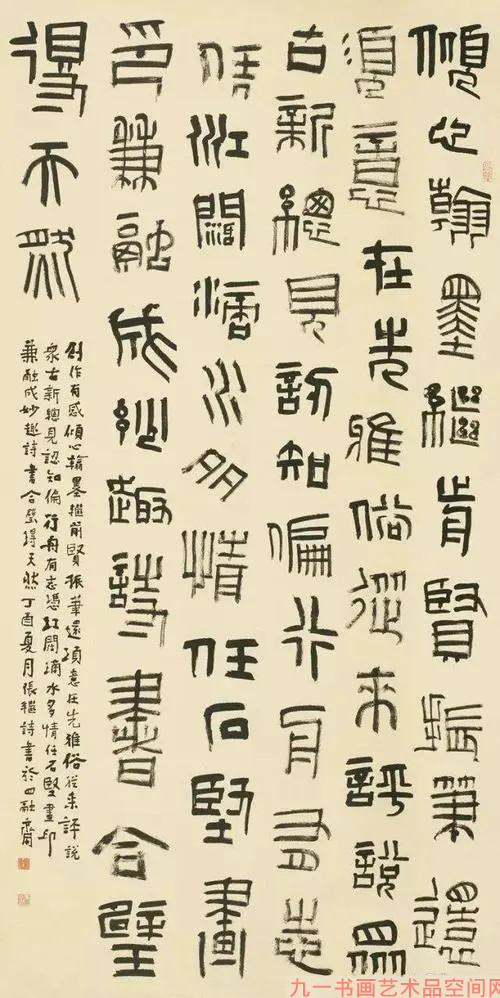 傾心翰墨繼前賢振筆還
須意在先雅俗從來評說眾
古新總見認知偏行舟有志
憑江闊滴水多情任石堅畫
印兼融成妙趣詩書合璧
得天然
創作有感傾心翰墨繼前賢振筆還須意在先雅俗從來評說
眾古新總見認知偏行舟有志憑江闊滴水多情任石堅畫印
兼融成妙趣詩書合璧得天然丁酉夏月張繼詩書於四融齋
九一书画艺术品空间网